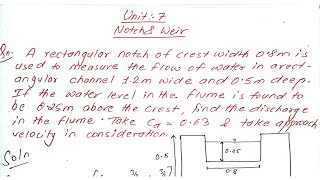 Unit:-7
Notch & Weir
Qn. A rectangular notch of crest width 0.8m is
used to measure the flow of water in a rect-
angular channel 1.2m wide and 0.5m deep.
If the water level in the flume is found to
be 0.25m above the crest, find the discharge
in the flume. Take Cd = 0.63 & take approach
velocity in consideration.
Soln
0.5
0.25
0.8